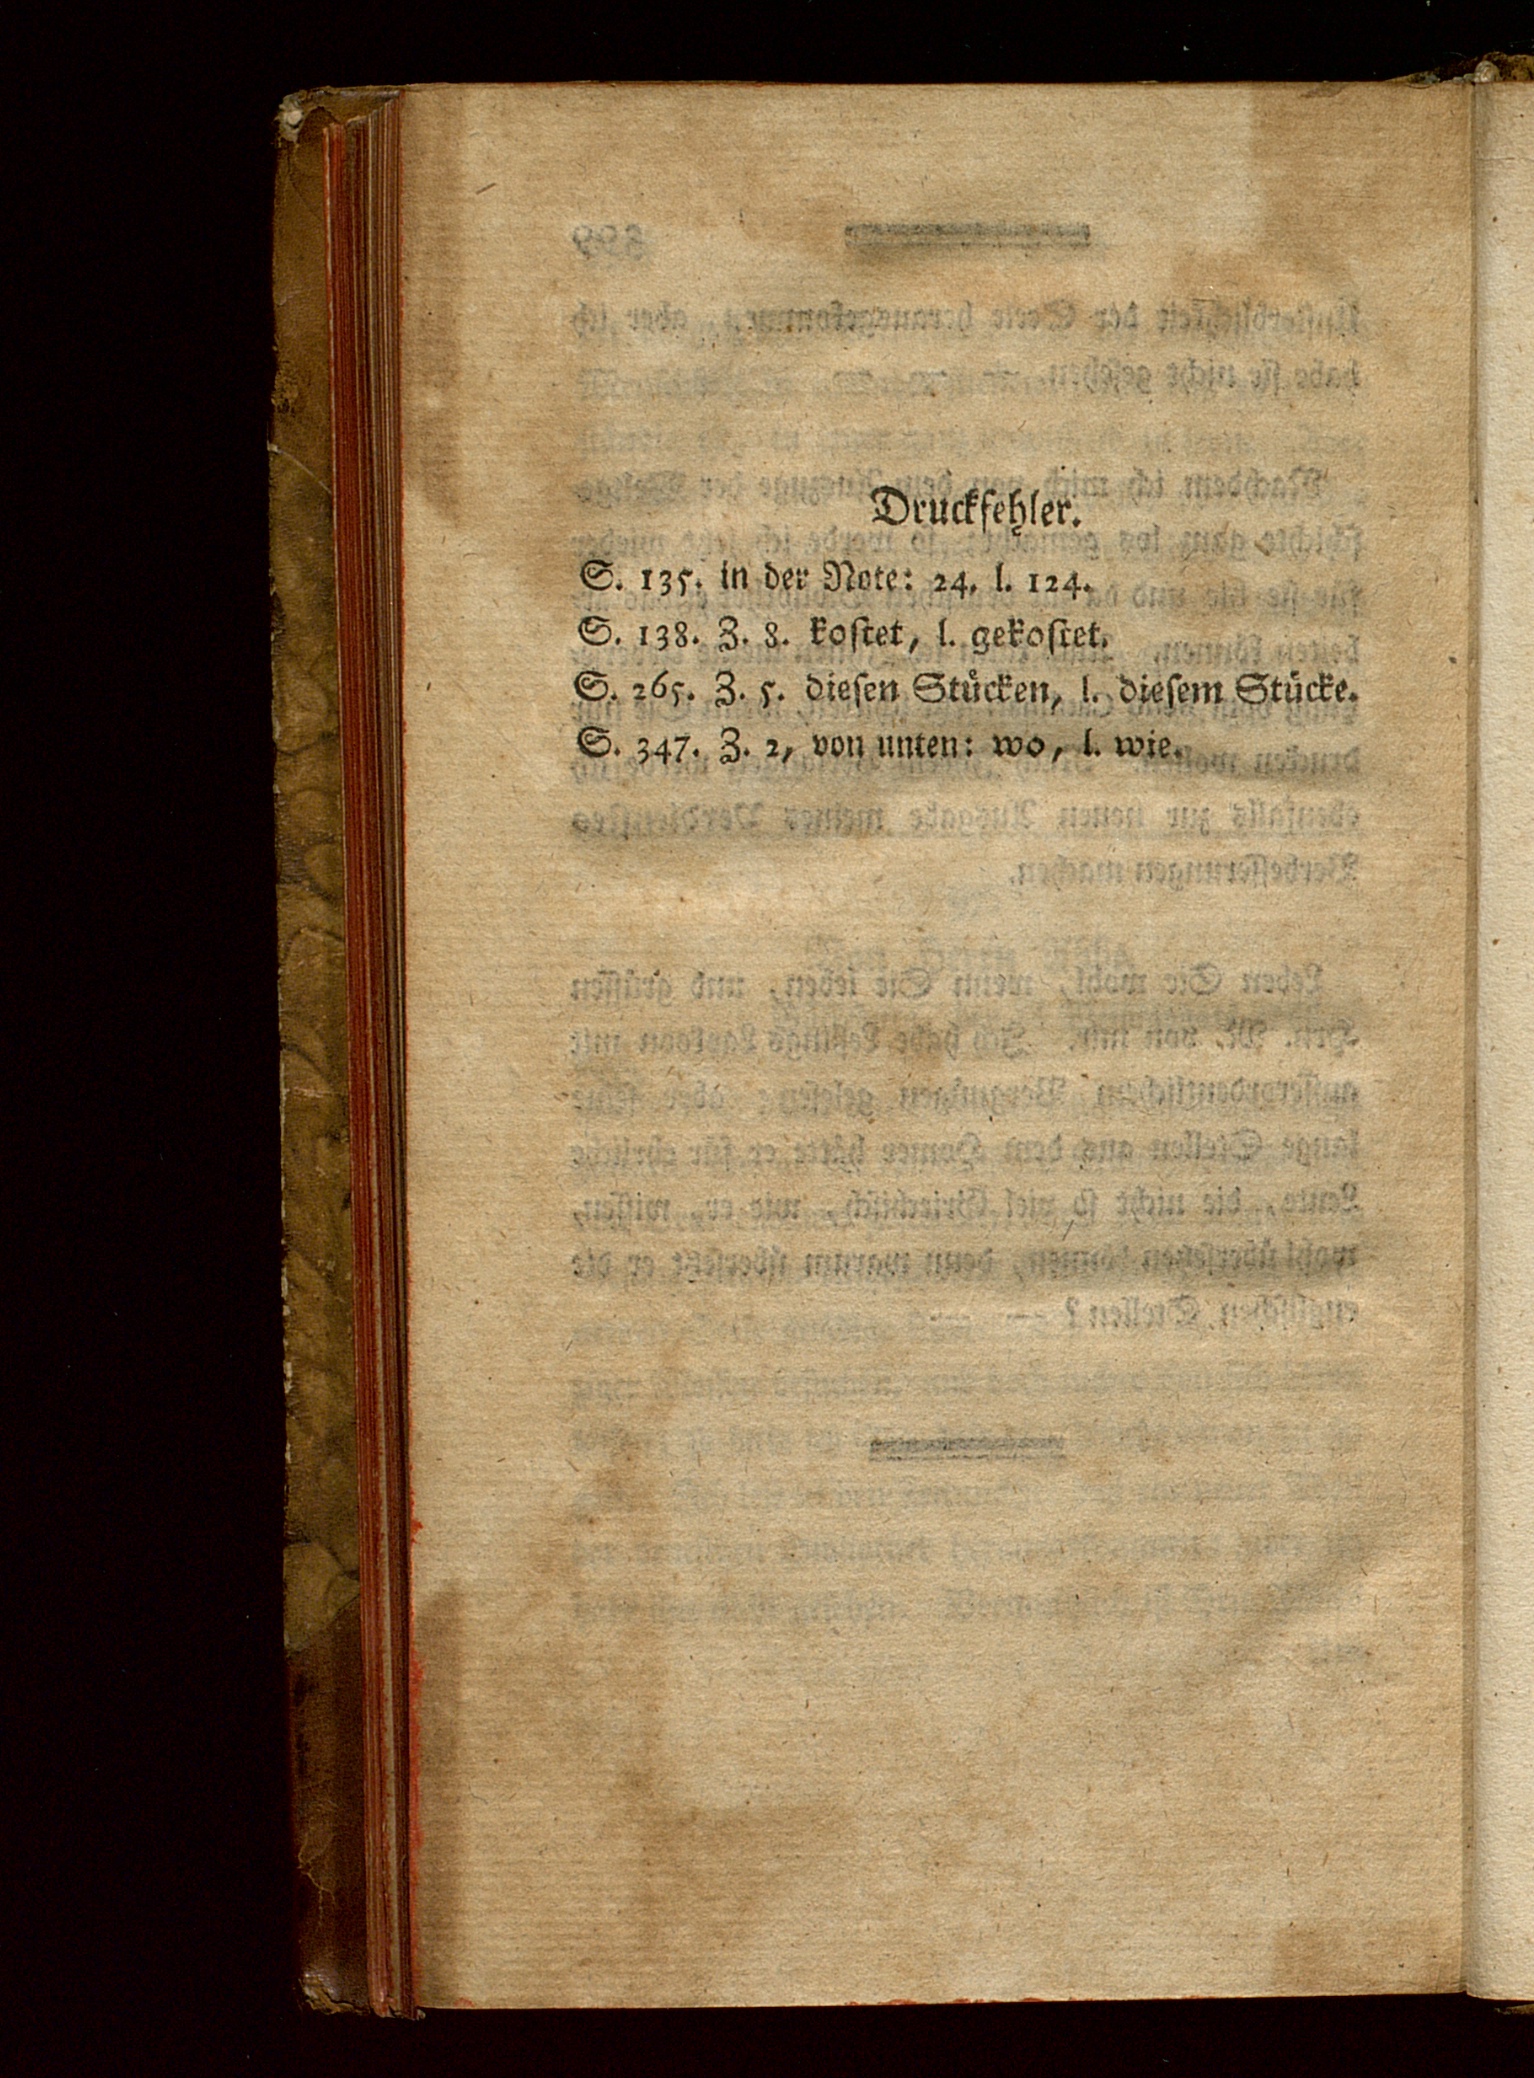 Druckfehler.
S. 135. in der Note: 24. l. 124.
S. 138. Z. 8. kostet, l. gekostet.
S. 265. Z. 5. diesen Stücken, l. diesem Stücke.
S. 347. Z. 2, von unten: wo, l. wie.